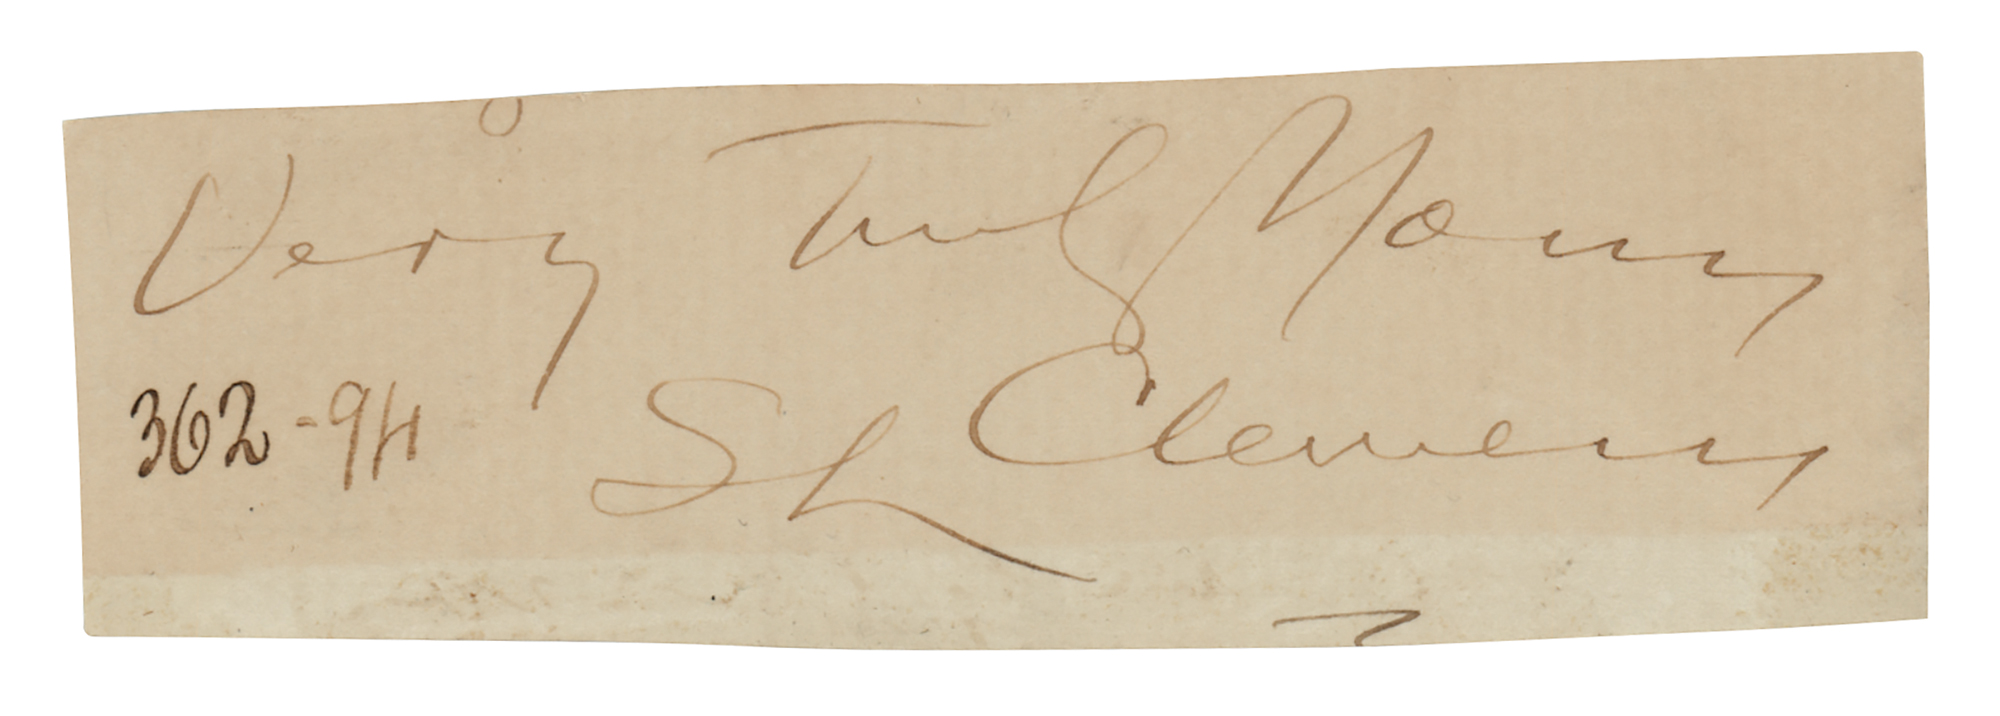 Very Truly Yours
362-94 SL Clemens